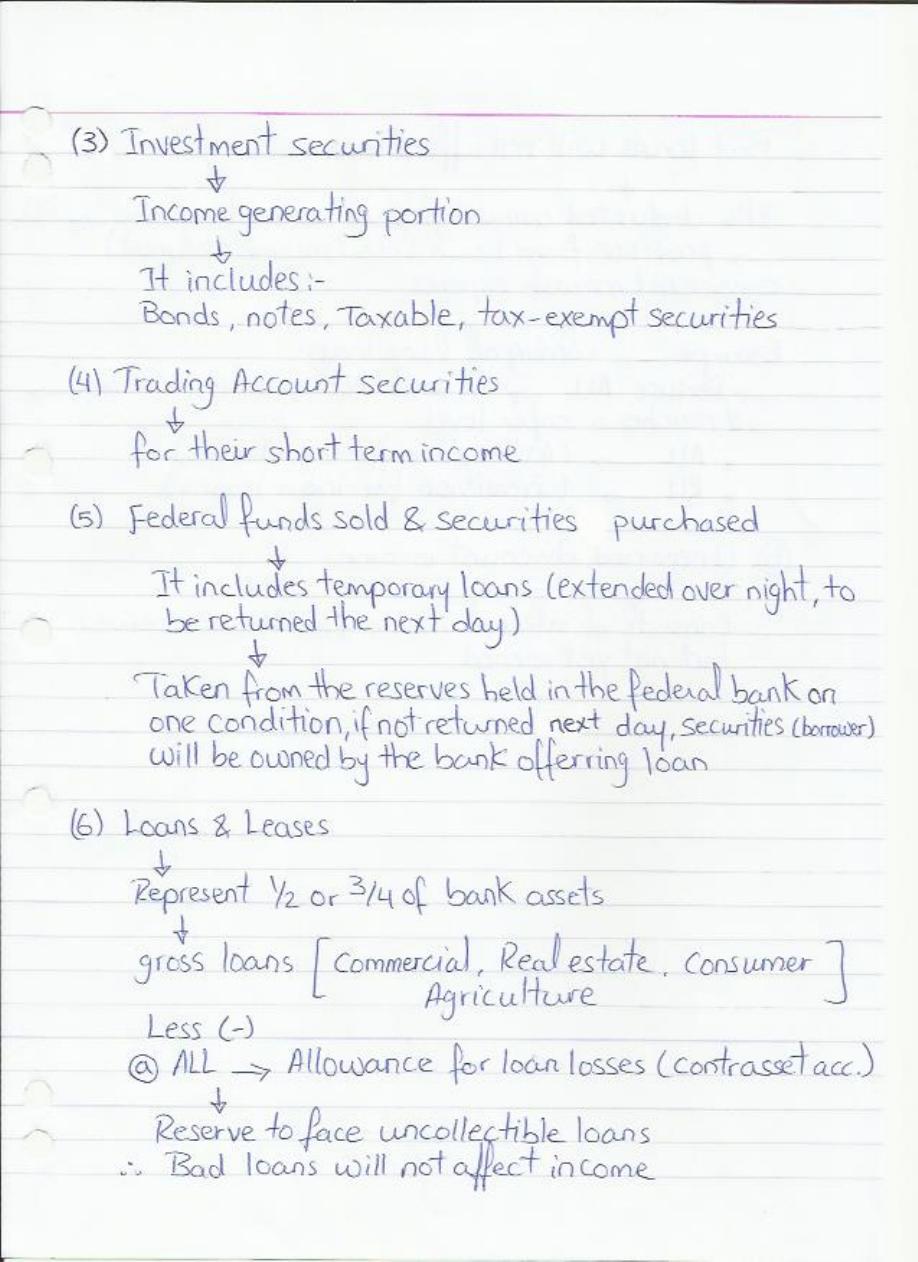 (3) Investment securities
↓
Income generating portion
↓
It includes :-
Bonds, notes, Taxable, tax-exempt securities
(4) Trading Account securities
↓
for their short term income
(5) Federal funds sold & securities purchased
↓
It includes temporary loans (extended over night, to
be returned the next day)
↓
Taken from the reserves held in the federal bank on
one condition, if not returned next day, securities (borrower)
will be owned by the bank offerring loan
(6) Loans & Leases
↓
Represent 1/2 or 3/4 of bank assets
↓
gross loans [Commercial, Real estate, Consumer
Agriculture]
Less (-)
ⓐ ALL → Allowance for loan losses (contrasset acc.)
↓
Reserve to face uncollectible loans
∴ Bad loans will not affect income